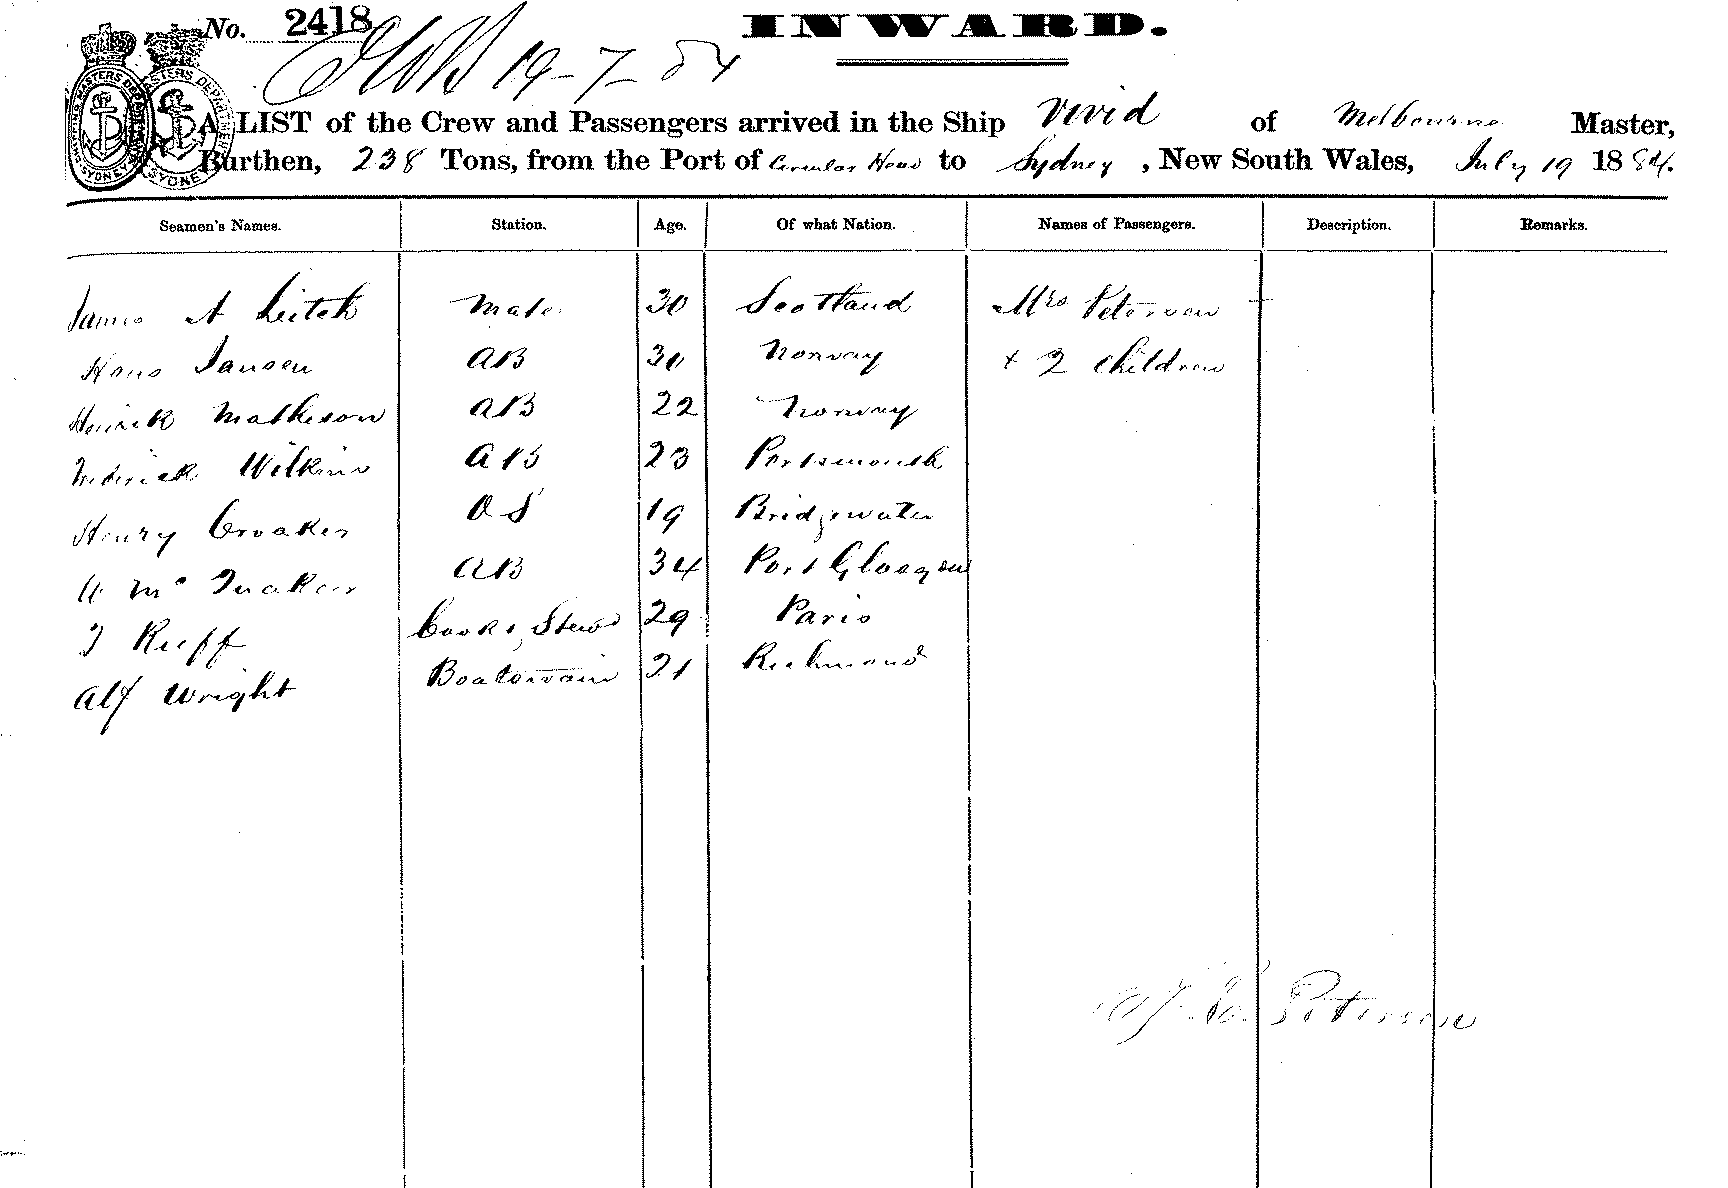 No. 2418 INWARD.
19-7-84
A LIST of the Crew and Passengers arrived in the Ship Vivid of Melbourne Master,
Burthen, 238 Tons, from the Port of Circular Head to Sydney, New South Wales, July 19 1884.
Seamen's Names. Station. Age. Of what Nation. Names of Passengers. Description. Remarks.
James A Leitch Mate 30 Scotland Mrs Petersen
Hans Jansen AB 30 Norway + 2 children
Henrik Mathieson AB 22 Norway
Frederick Wilkins AB 23 Portsmouth
Henry Croaker OS 19 Bridgwater
Mc AB 34 Port Glasgow
Cook & Stewd 29 Paris
Alf Wright Boatswain 21 Richmond
Petersen